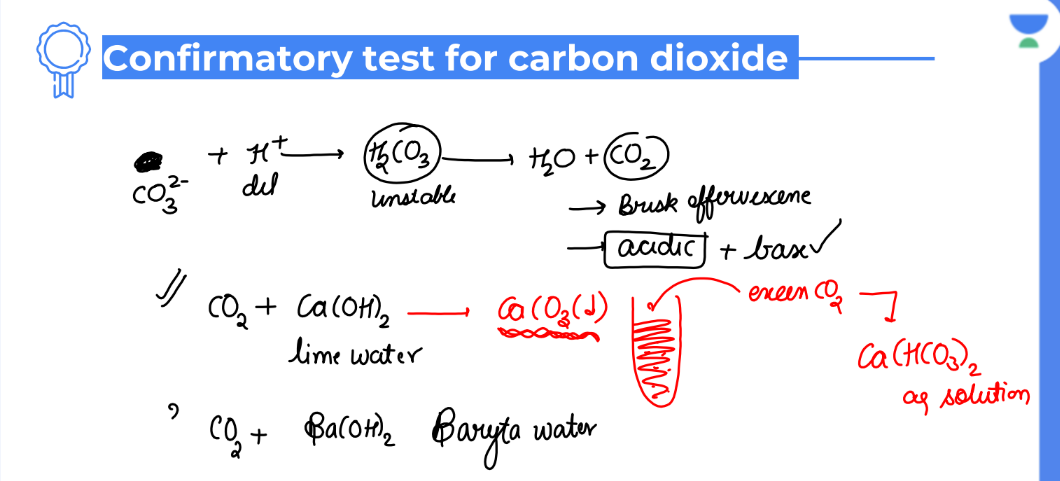 Confirmatory test for carbon dioxide
CO₃²⁻ + H⁺ → H₂CO₃ → H₂O + CO₂
dil unstable
→ Brisk effervescene
→ acidic + base ✓
CO₂ + Ca(OH)₂ → CaCO₃(↓) excess CO₂
lime water
Ca(HCO₃)₂
aq solution
CO₂ + Ba(OH)₂ Baryta water